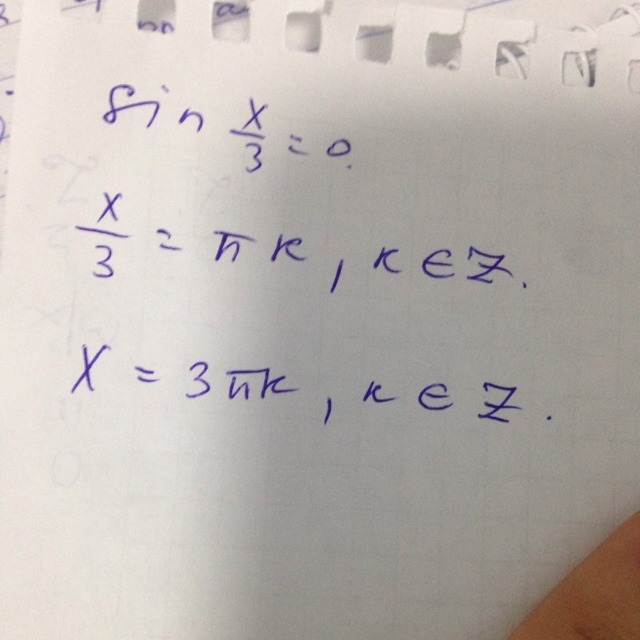 sin x/3 = 0.
x/3 = πk, k ∈ Z.
x = 3πk, k ∈ Z.